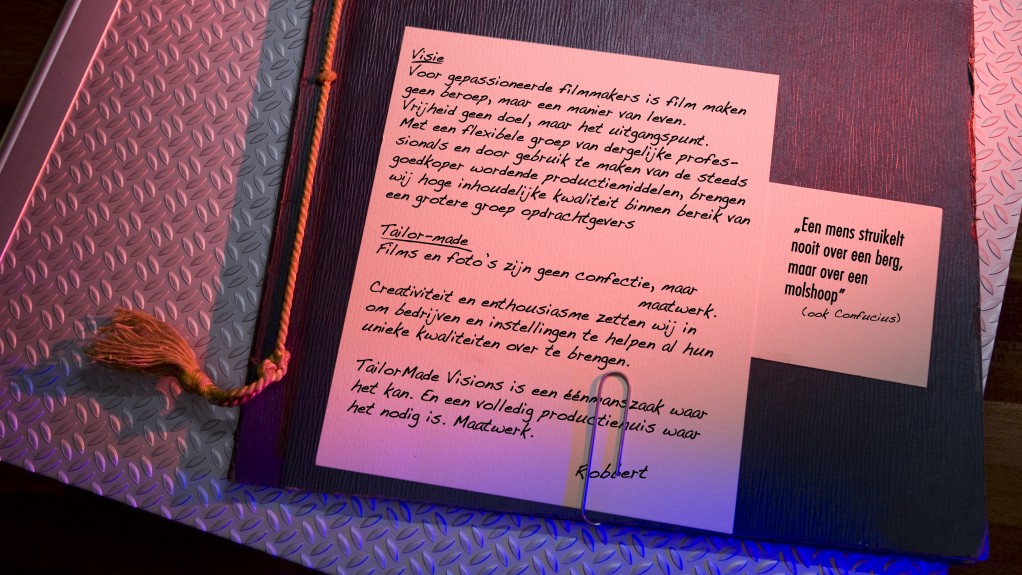 Visie
Voor gepassioneerde filmmakers is film maken
geen beroep, maar een manier van leven.
Vrijheid geen doel, maar het uitgangspunt.
Met een flexibele groep van dergelijke profes-
sionals en door gebruik te maken van de steeds
goedkoper wordende productiemiddelen, brengen
wij hoge inhoudelijke kwaliteit binnen bereik van
een grotere groep opdrachtgevers
Tailor-made
Films en foto's zijn geen confectie, maar
maatwerk.
Creativiteit en enthousiasme zetten wij in
om bedrijven en instellingen te helpen al hun
unieke kwaliteiten over te brengen.
TailorMade Visions is een éénmanszaak waar
het kan. En een volledig productiehuis waar
het nodig is. Maatwerk.
Robbert
„Een mens struikelt
nooit over een berg,
maar over een
molshoop"
(ook Confucius)